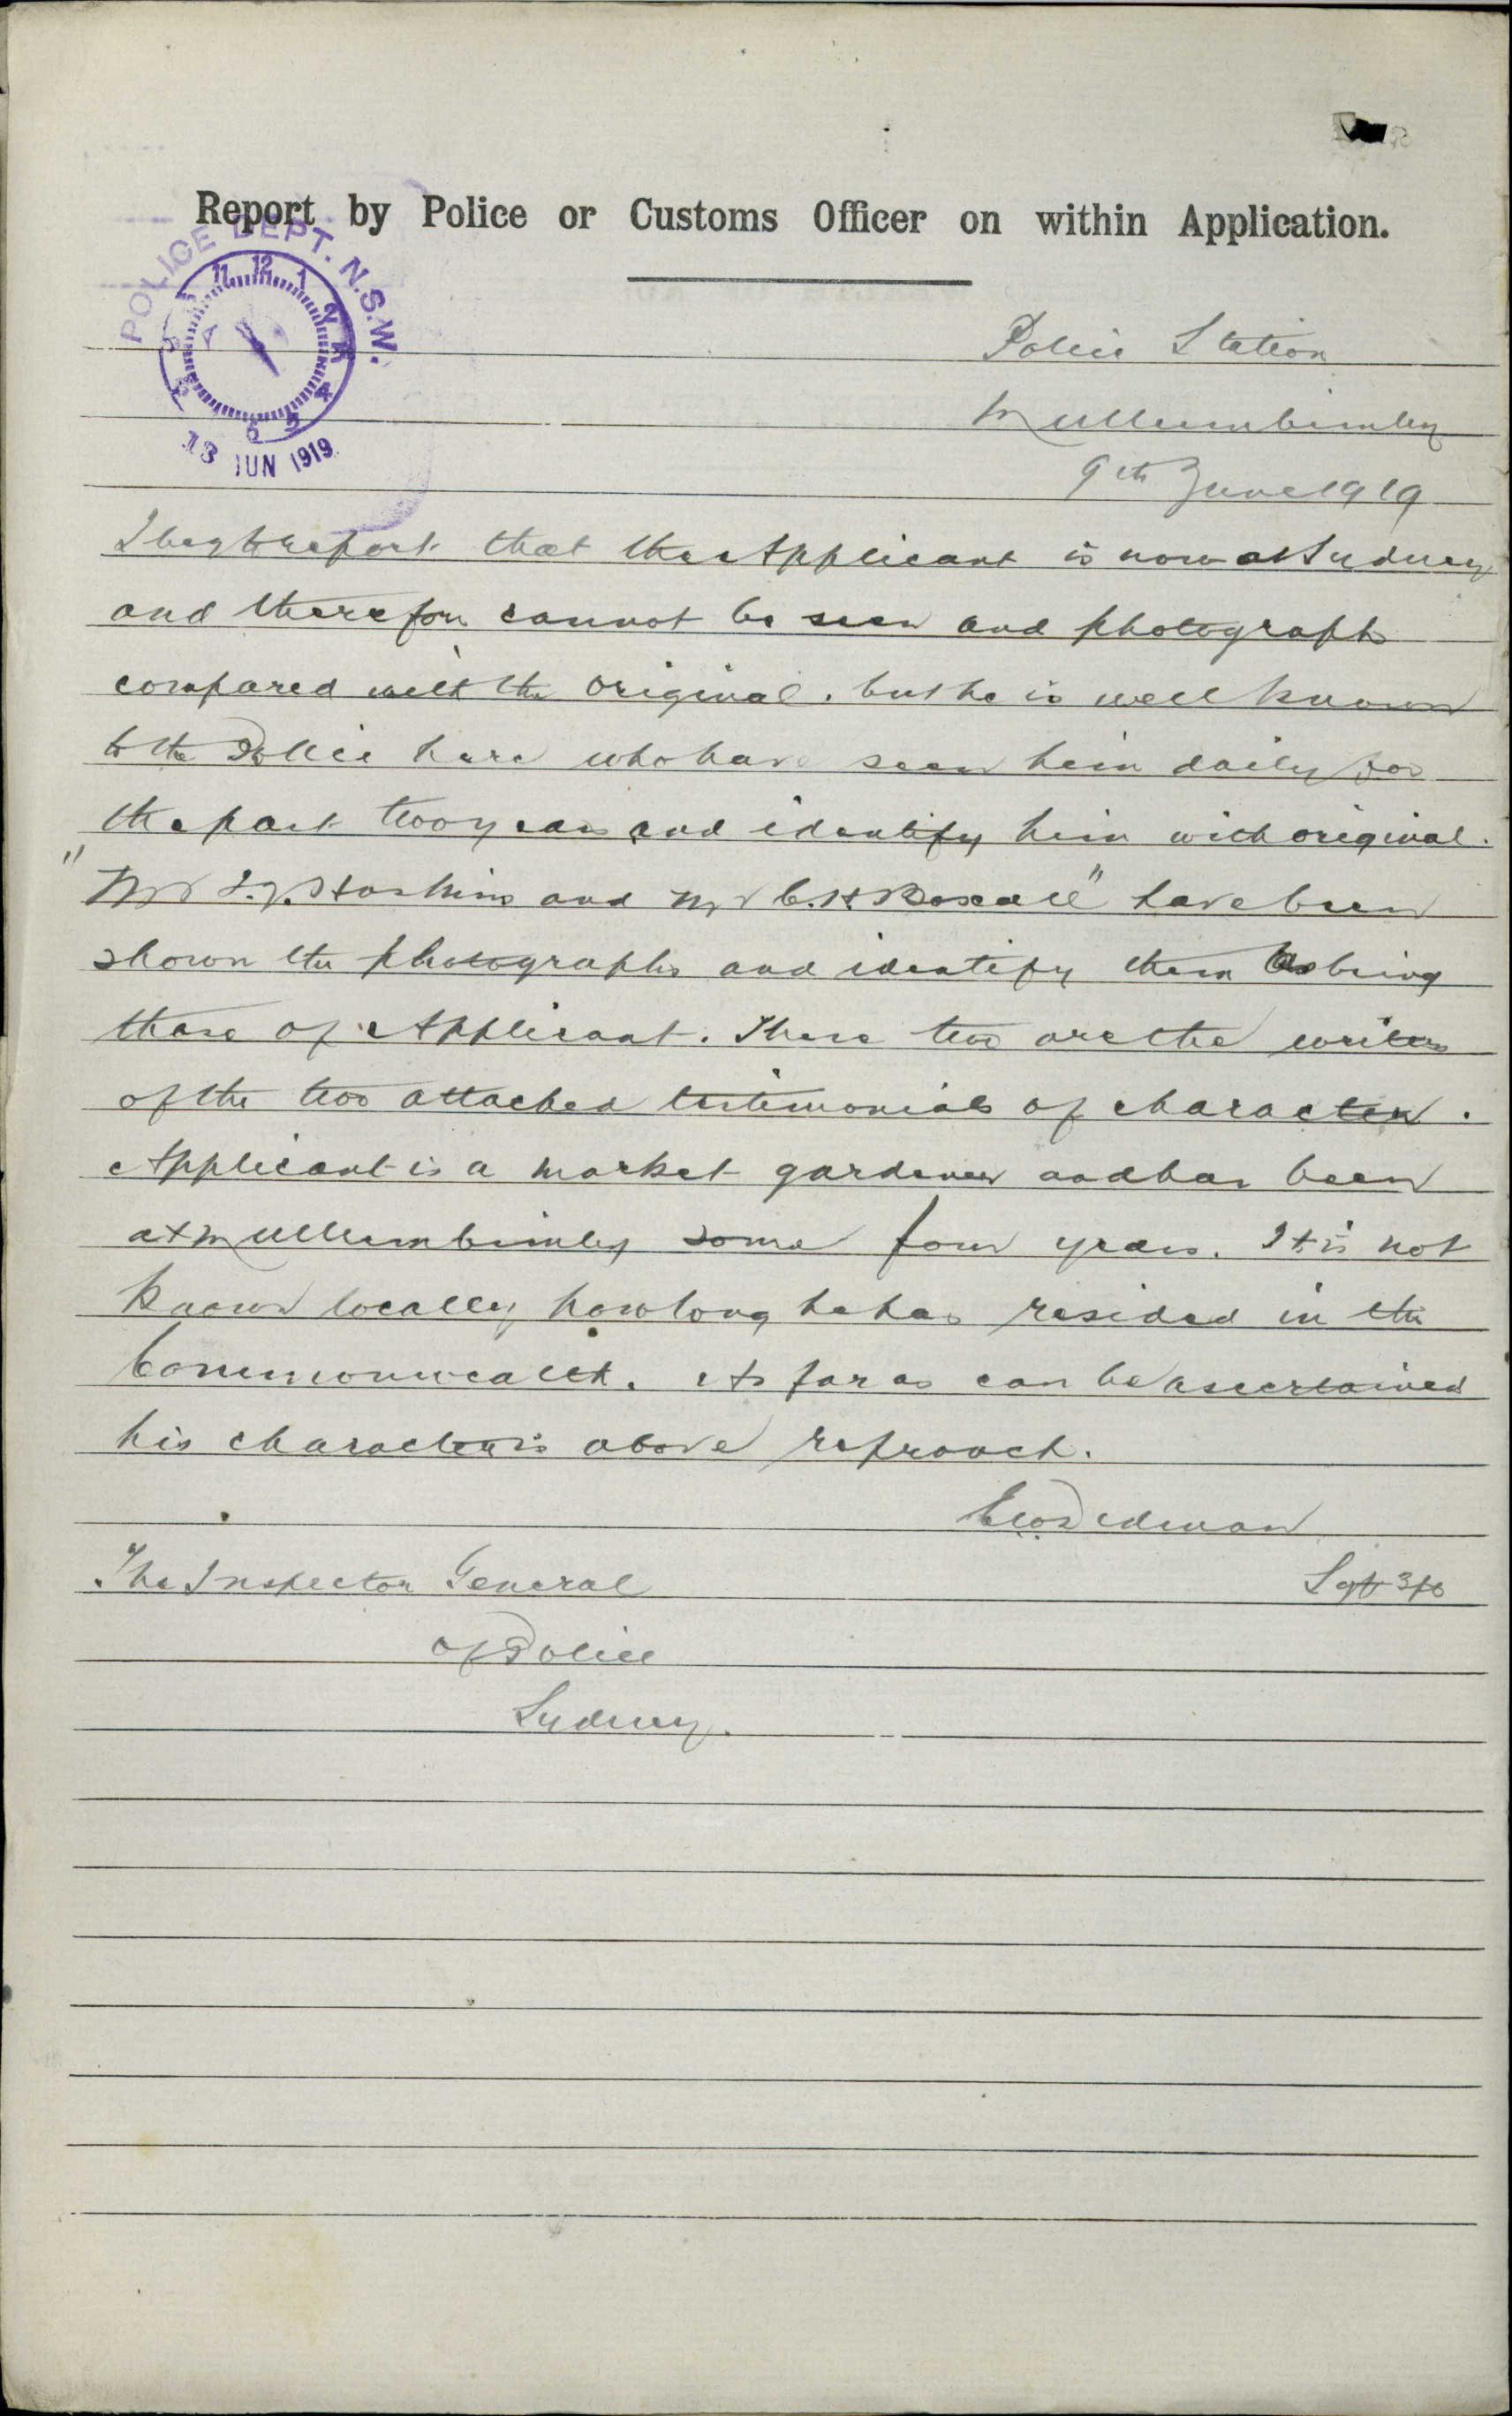 Report by Police or Customs Officer on within Application.
POLICE DEPT. N.S.W.
13 JUN 1919
Police Station
Mullumbimby
9th June 1919
I beg to report that the Applicant is now at Sydney
and therefore cannot be seen and photograph
compared with the original. but he is well known
to the Police here who have seen him daily for
the past two years and identify him with original.
"Mr Hoskins and Mr C.H. Boxall" have been
shown the photographs and identify them as being
those of Applicant. These two are the writers
of the two attached testimonials of character.
Applicant is a market gardener and has been
at Mullumbimby some four years. It is not
known locally how long he has resided in the
Commonwealth. As far as can be ascertained
his character is above reproach.
Sgt 3/c
The Inspector General
of Police
Sydney.